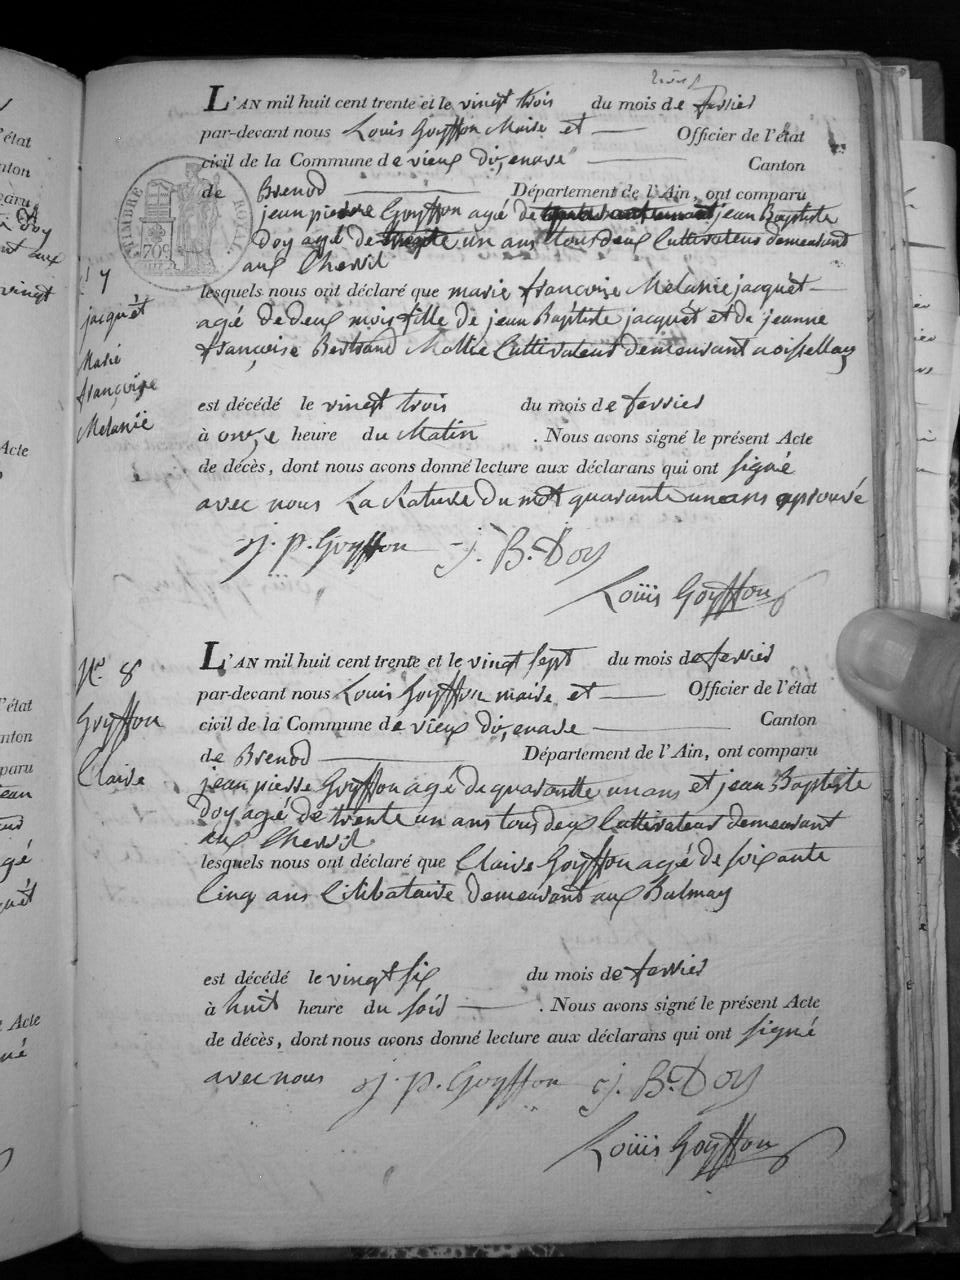 L'AN mil huit cent trente et le vingt trois du mois de fevrier
par-devant nous Louis Goyffon Maire et Officier de l'état
civil de la Commune de vieux d'izenave Canton
de Brenod Département de l'Ain, ont comparu
jean pierre Goyffon agé de jean Baptiste
Doy agé de trente un ans tous deux Cultivateurs demeurant
aux Chevril
lesquels nous ont déclaré que marie françoise Melanie jacquet
agé de deux mois fille de jean Baptiste jacquet et de jeanne
françoise Bertrand Cultivateurs demeurant
est décédé le vingt trois du mois de fevrier
à onze heure du Matin . Nous avons signé le présent Acte
de décès, dont nous avons donné lecture aux déclarans qui ont signé
avec nous La Rature du mot quarante un ans aprouvé
j. p. Goyffon j. B. Doy
Louis Goyffon
TIMBRE ROYAL
70c
7
jacquet
Marie
françoise
Melanie
N.° 8
Goyffon
Claire
L'AN mil huit cent trente et le vingt sept du mois de fevrier
par-devant nous Louis Goyffon maire et Officier de l'état
civil de la Commune de vieux d'izenave Canton
de Brenod Département de l'Ain, ont comparu
jean pierre Goyffon agé de quarante un ans et jean Baptiste
Doy agé de trente un ans tous deux Cultivateur demeurant
aux Chevril
lesquels nous ont déclaré que Claire Goyffon agé de soixante
Cinq ans Célibataire demeurant aux Balmay
est décédé le vingt six du mois de fevrier
à huit heure du soir . Nous avons signé le présent Acte
de décès, dont nous avons donné lecture aux déclarans qui ont signé
avec nous j. p. Goyffon j. B. Doy
Louis Goyffon